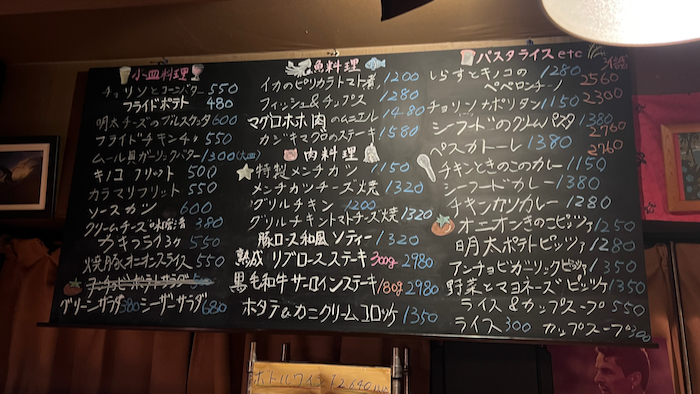 小皿料理
チョリソとコーンバター 550
フライドポテト 480
明太チーズのブルスケッタ 600
フライドチキンチャ 550
ムール貝ガーリックバター 1300(大皿)
キノコフリット 500
カラマリフリット 550
ソースカツ 600
クリームチーズの味噌漬 380
カキフライ 550
焼豚オニオンスライス 550
アンチョビポテトサラダ 500
グリーンサラダ 580 シーザーサラダ 680
魚料理
イカのピリカラトマト煮 1200
フィッシュ&チップス 1280
マグロホホ肉のムニエル 1480
カジキマグロのステーキ 1580
肉料理
特製メンチカツ 1150
メンチカツチーズ焼 1320
グリルチキン 1200
グリルチキントマトチーズ焼 1320
豚ロース和風ソティー 1320
熟成リブロースステーキ 300g 2980
黒毛和牛サーロインステーキ 180g 2980
ホタテ&カニクリームコロッケ 1350
パスタライス etc
しらすとキノコの 1280 2560
ペペロンチーノ
チョリソナポリタン 1150 2300
シーフードのクリームパスタ 1380 2760
ペスカトーレ 1380 2760
チキンときのこのカレー 1150
シーフードカレー 1380
チキンカツカレー 1280
オニオンきのこピッツァ 1250
明太ポテトピッツァ 1280
アンチョビガーリックピッツァ 1350
野菜とマヨネーズピッツァ 1350
ライス&カップスープ 550
ライス 300 カップスープ 300
ボトルワイン